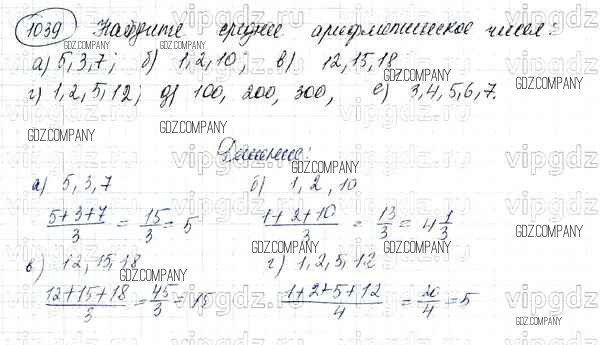 1039 Найдите среднее арифметическое чисел:
а) 5, 3, 7; б) 1, 2, 10; в) 12, 15, 18
г) 1, 2, 5, 12; д) 100, 200, 300, е) 3, 4, 5, 6, 7.
Решение:
а) 5, 3, 7 б) 1, 2, 10
5+3+7/3 = 15/3 = 5 1+2+10/3 = 13/3 = 4 1/3
в) 12, 15, 18 г) 1, 2, 5, 12
12+15+18/3 = 45/3 = 15 1+2+5+12/4 = 20/4 = 5
GDZ.COMPANY
vipgdz.ru